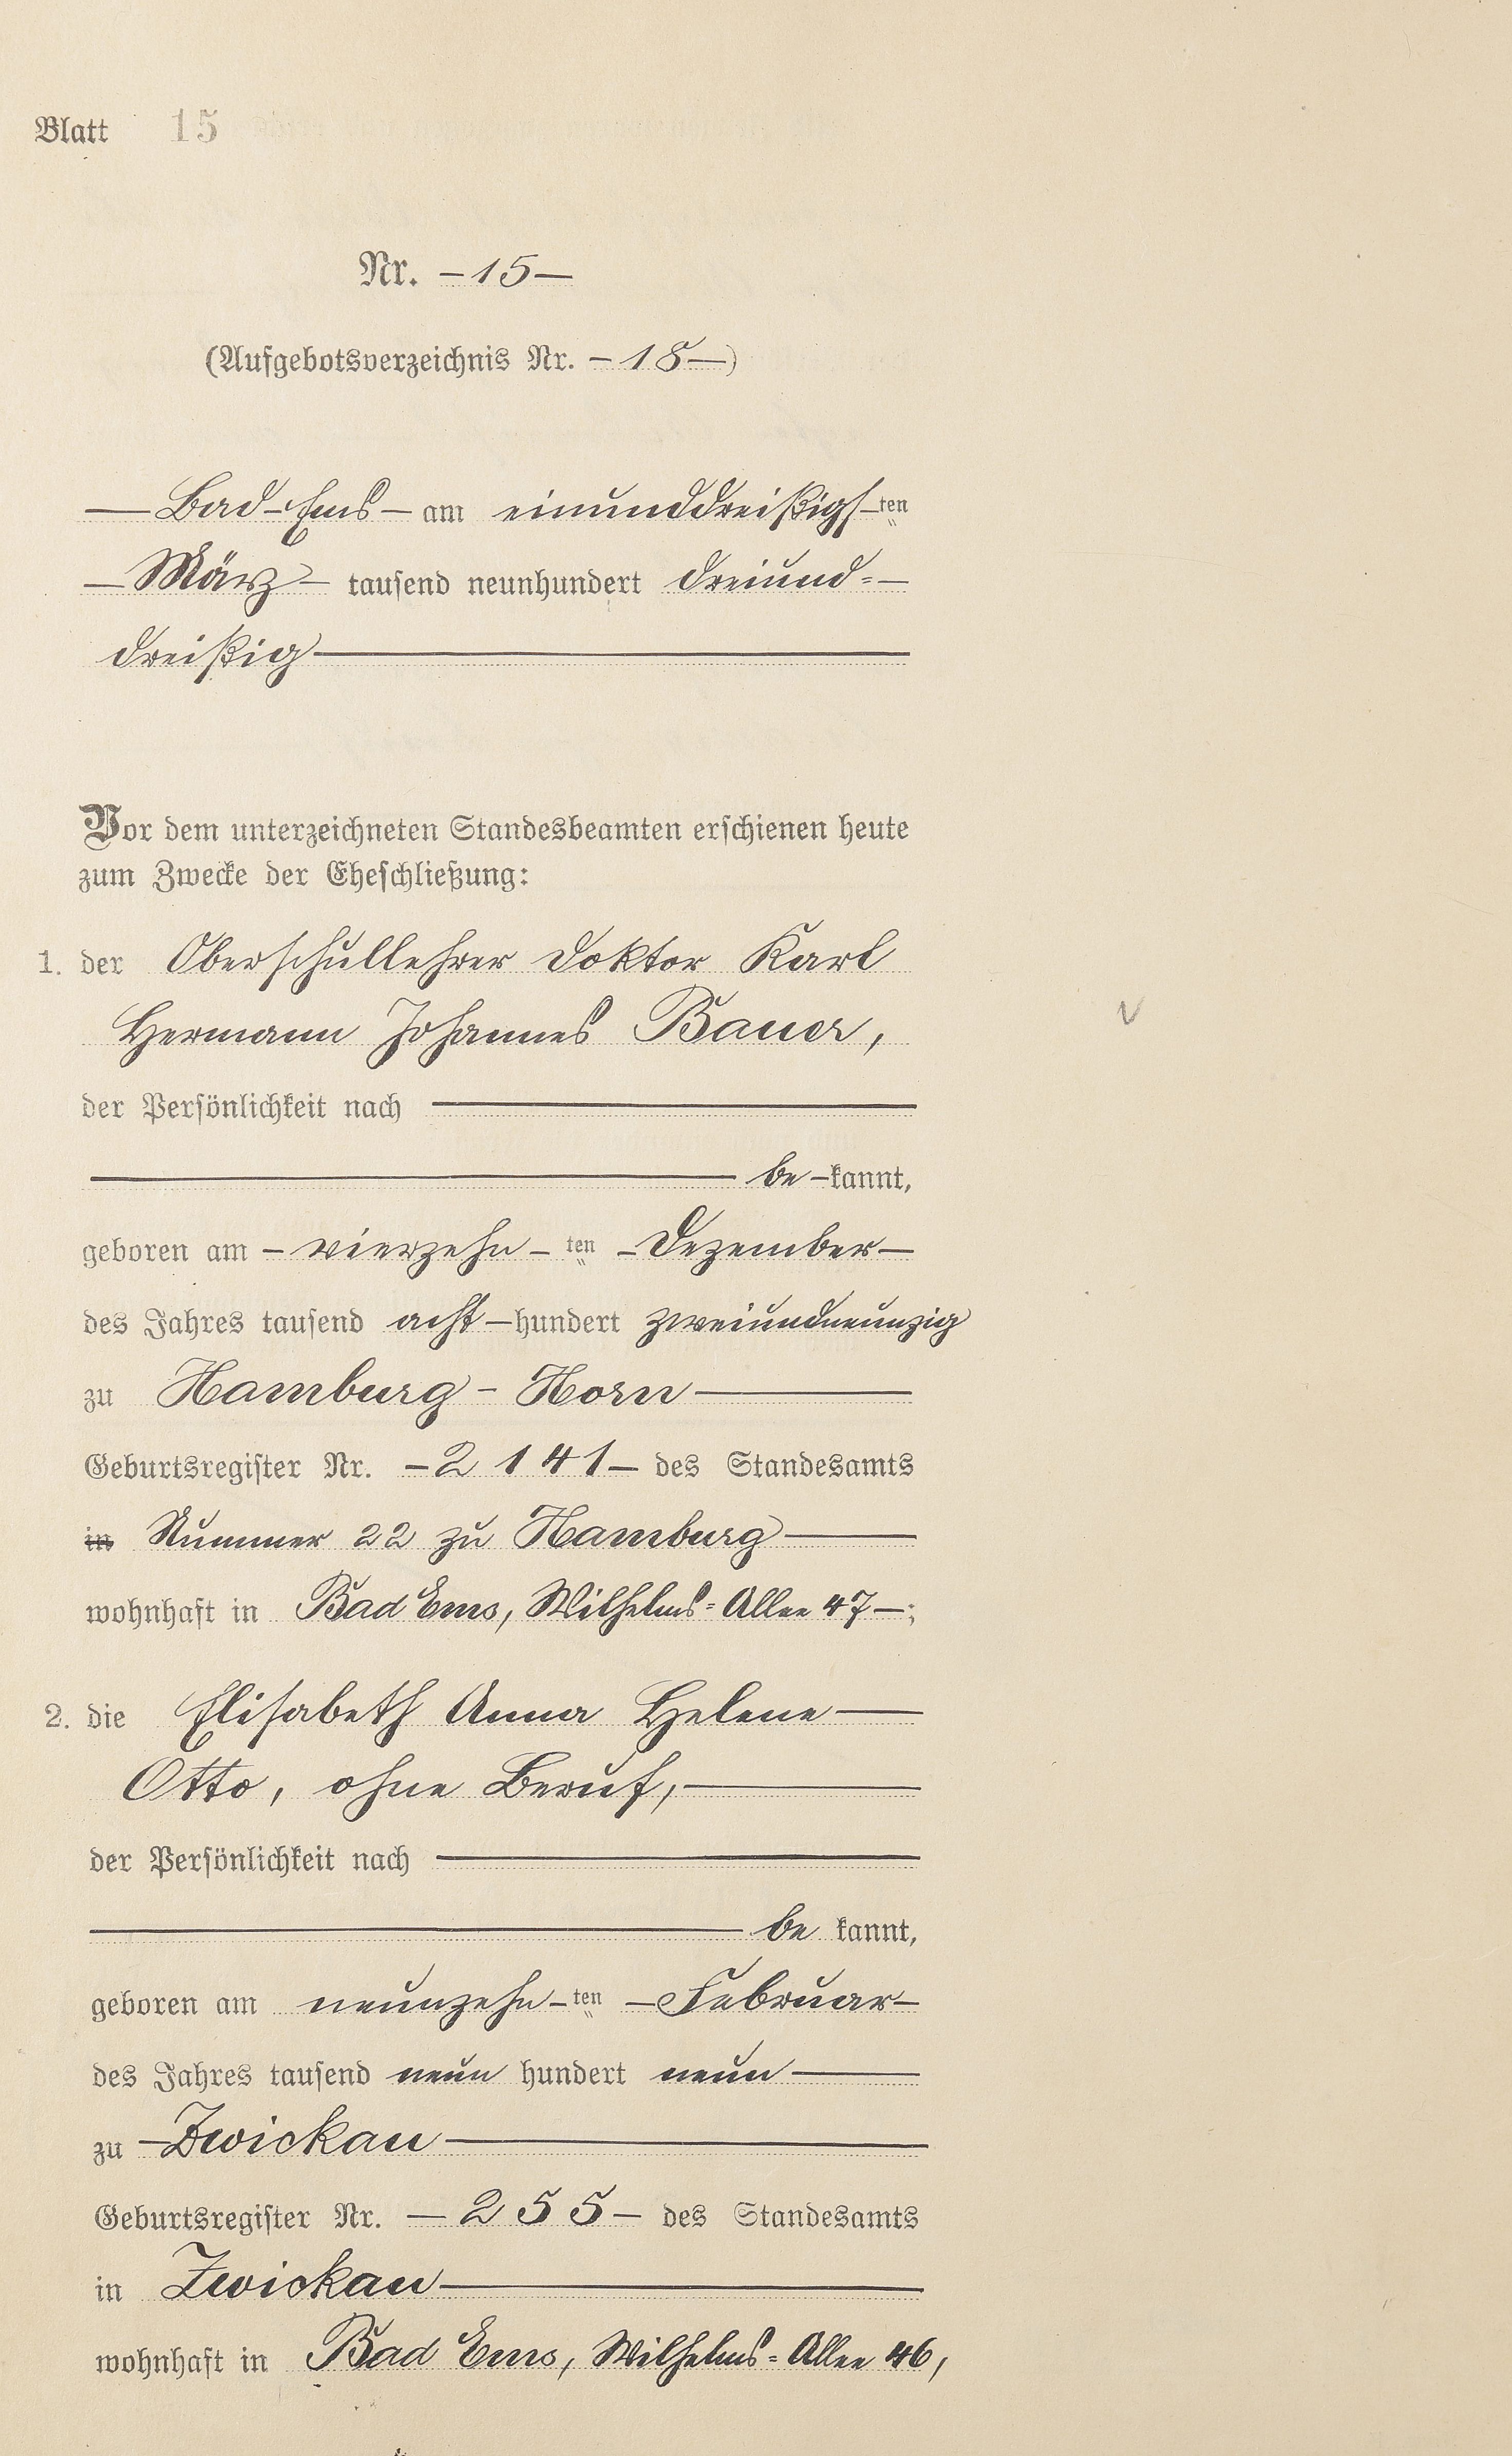 Blatt 15
Nr. – 15 –
(Aufgebotsverzeichnis Nr. – 18 –)
— Bad-Ems – am einunddreißigs-ten
– März – tausend neunhundert dreiund=–
dreißig —
Vor dem unterzeichneten Standesbeamten erschienen heute
zum Zwecke der Eheschließung:
1. der Oberschullehrer Doktor Karl
Hermann Johannes Bauer,
der Persönlichkeit nach —
— be –kannt,
geboren am – vierzehn – ten – Dezember –
des Jahres tausend acht –hundert zweiundneunzig
zu Hamburg - Horn —
Geburtsregister Nr. – 2141 – des Standesamts
in Nummer 22 zu Hamburg —
wohnhaft in Bad Ems, Wilhelms=Allee 47 –;
2. die Elisabeth Anna Helene —
Otto, ohne Beruf, —
der Persönlichkeit nach —
— be kannt,
geboren am neunzehn – ten – Februar –
des Jahres tausend neun hundert neun —
zu – Zwickau —
Geburtsregister Nr. — 255 – des Standesamts
in Zwickau —
wohnhaft in Bad Ems, Wilhelms=Allee 46,